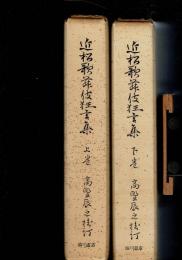 近松歌舞伎狂言集
上巻
高野辰之校訂
近松歌舞伎狂言集
下巻
高野辰之校訂